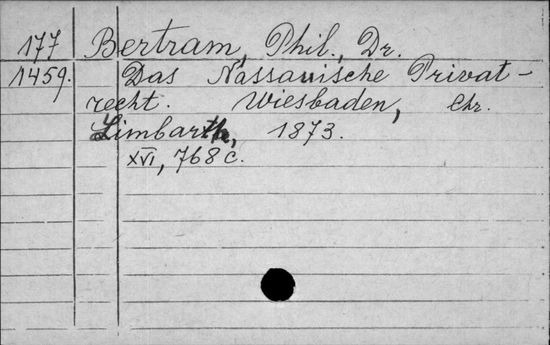 177 Bertram, Phil., Dr.
1459. Das Nassauische Privat-
recht. Wiesbaden, Chr.
Limbarth, 1873.
XVI, 768 c.